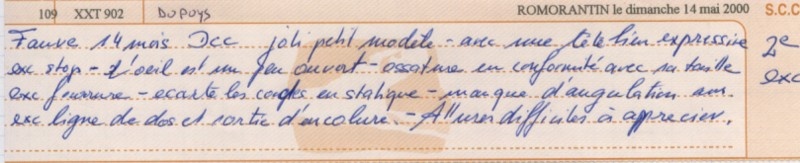 109 XXT 902 DUPUYS ROMORANTIN le dimanche 14 mai 2000 S.C.C
Fauve 14 mois Dcc joli petit modèle - avec une tête bien expressive 2e
exc stop - L'oeil est un peu ouvert - ossature en conformité avec sa taille exc
exc fourrure - ecarte les coudes en statique - manque d'angulation av.
exc ligne de dos et sortie d'encolure. - Allures difficiles à apprecier.